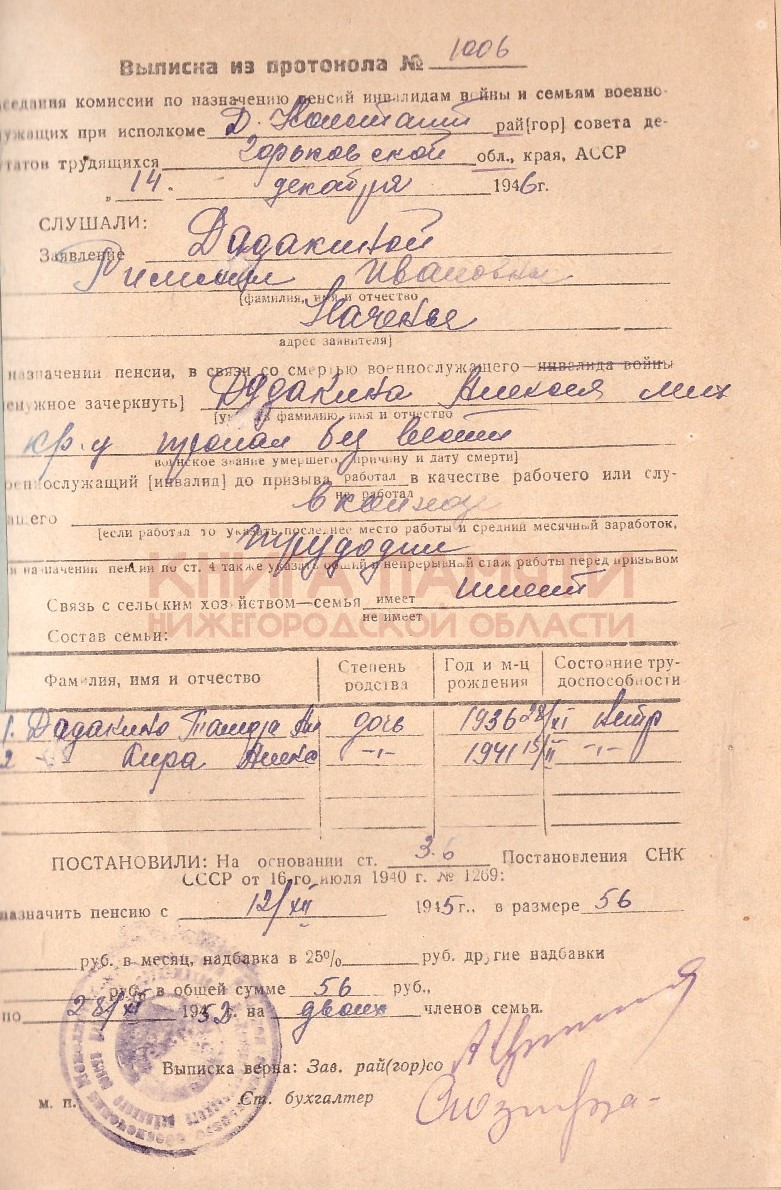 Выписка из протокола № 1006
седания комиссии по назначению пенсий инвалидам войны и семьям военно-
ужащих при исполкоме Д. Константи рай[гор] совета де-
татов трудящихся Горьковской обл., края, АССР
„14. декабря 1946 г.
СЛУШАЛИ:
Заявление Дадакиной
Ивановны
[фамилия, имя и отчество
адрес заявителя]
назначении пенсии, в связи со смертью военнослужащего—инвалида войны
енужное зачеркнуть] Дадакина Алексея Мих
[указать фамилию, имя и отчество
кр-ц пропал без вести
воинское звание умершего, причину и дату смерти]
еннослужащий [инвалид] до призыва работал в качестве рабочего или слу-
не работал
ащего в колхозе
[если работал то указать последнее место работы и средний месячный заработок,
трудодни
и назначении пенсии по ст. 4 также указать общий и непрерывный стаж работы перед призывом
КНИГА ПАМЯТИ
НИЖЕГОРОДСКОЙ ОБЛАСТИ
Связь с сельским хозяйством—семья имеет имеет
не имеет
Состав семьи:
Фамилия, имя и отчество Степень родства Год и м-ц рождения Состояние трудоспособности
1. Дадакина Ал дочь 1936 28/XI нетр
2 -"- Кира Алекс -"- 1941 15/II -"-
ПОСТАНОВИЛИ: На основании ст. 3.6 Постановления СНК
СССР от 16-го июля 1940 г. № 1269:
назначить пенсию с 12/XII 1945 г., в размере 56
руб. в месяц, надбавка в 25% руб. другие надбавки
руб. в общей сумме 56 руб.,
по 28/XI 1952 г. на двоих членов семьи.
Выписка верна: Зав. рай(гор)со
м. п. Ст. бухгалтер